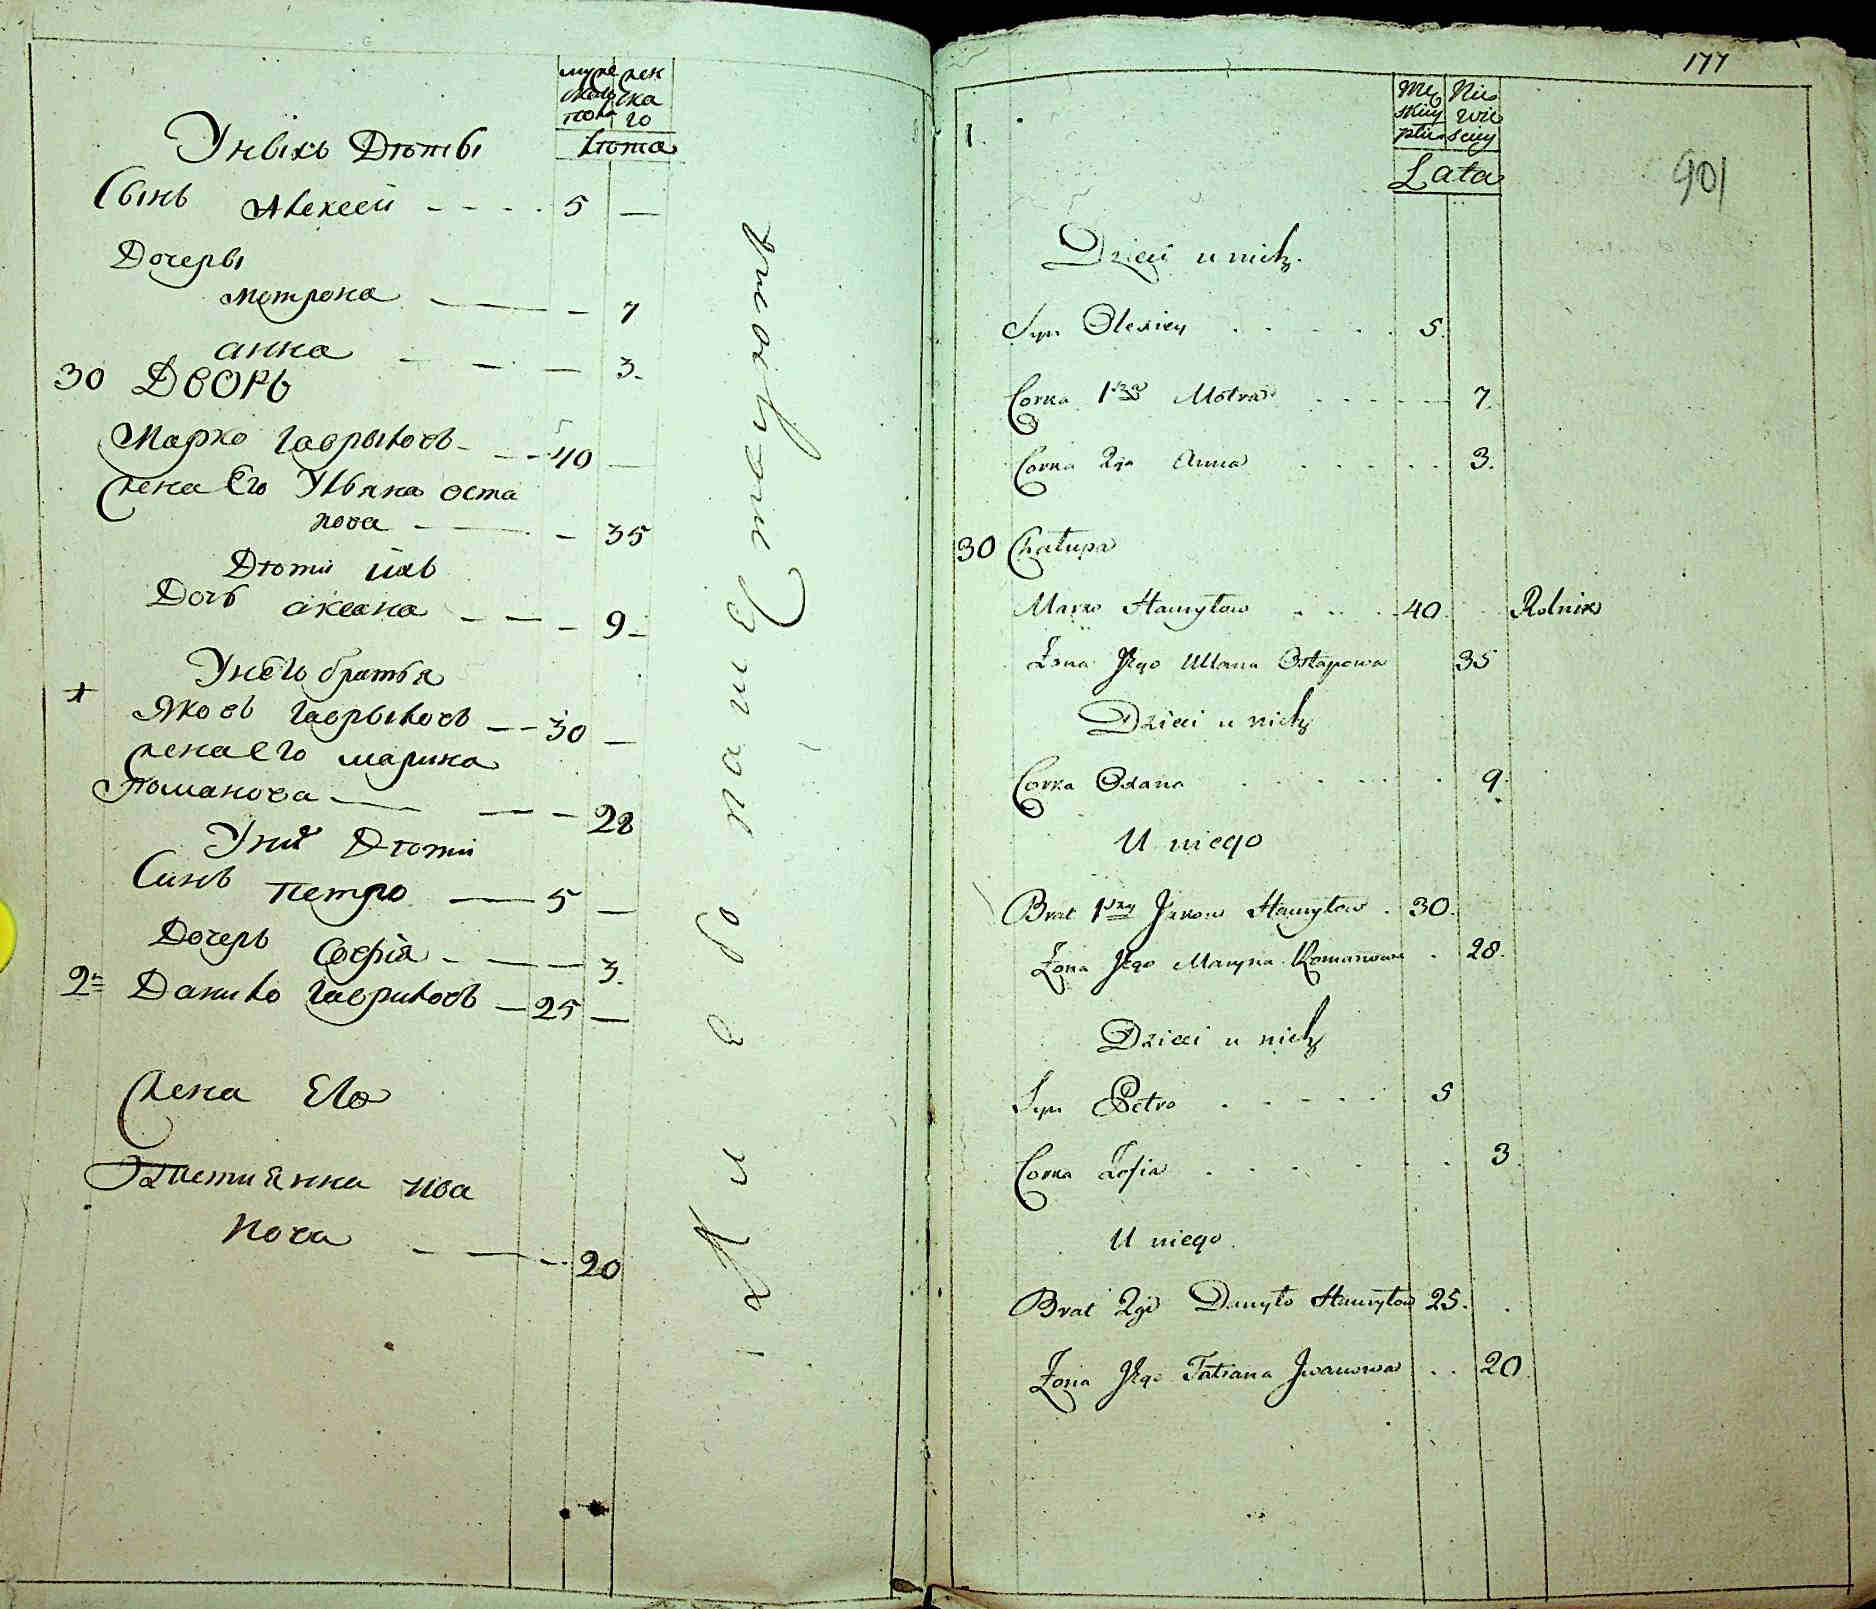 муже жен
ского ска
пола го
Лѣта
Унихъ Дѣты
Сынъ Алексей 5
Дочеры
мотрона 7
анна 3
30 Дворъ
Марко гаврыловъ 40
жена Его Ульяна оста
пова 35
Дѣти ихъ
Дочъ аксана 9
Унего братья
1 Яковъ гаврыловъ 30
жена его марина
романова 28
Уних Дѣти
Синъ петро 5
Дочеръ софия 3
2й Данило гавриловъ 25
жена Его
ива
нова 20
Хлебопашествуютъ
177
901
1.
Mę Nie
skiey wie
płci sciey
Lata
Dzieci u nich.
Syn Olexiey 5.
Corka 1sza Motra 7.
Corka 2ga Anna 3.
30 Chałupa
Marko Hawryłow 40. Rolnik
Żona Jego Ullana Ostapowa 35
Dzieci u nich
Corka Oxana 9.
U niego
Brat 1szy Jakow Hawryłow 30.
Żona Jego Maryna Romanowa 28.
Dzieci u nich
Syn Petro 5
Corka Zofia 3.
U niego.
Brat 2gi Danyło Hawryłow 25.
Żona Jego Tatiana Jwanowa 20.